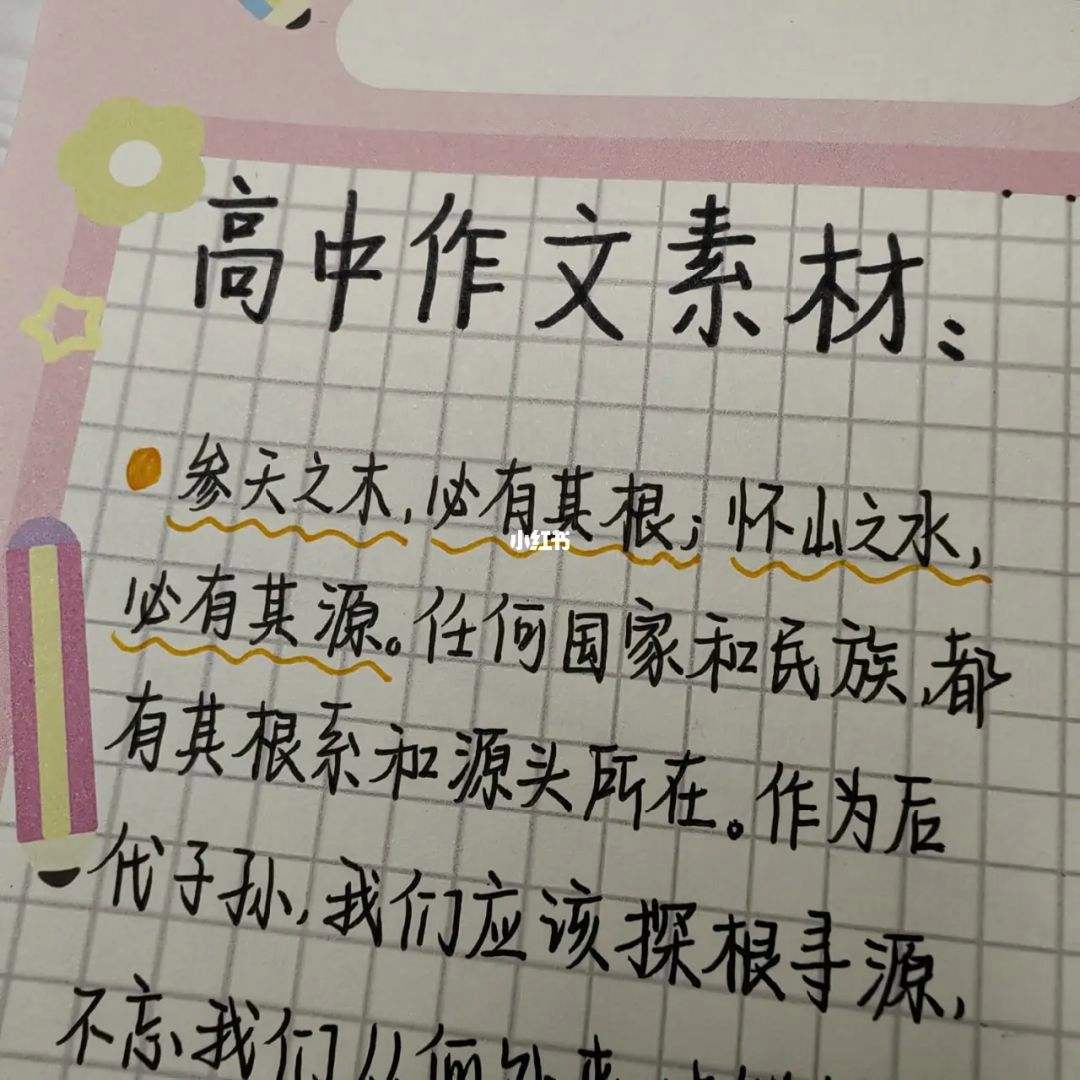 高中作文素材:
参天之木,必有其根;怀山之水,
小红书
必有其源。任何国家和民族,都
有其根系和源头所在。作为后
代子孙,我们应该探根寻源,
不忘我们从何处来